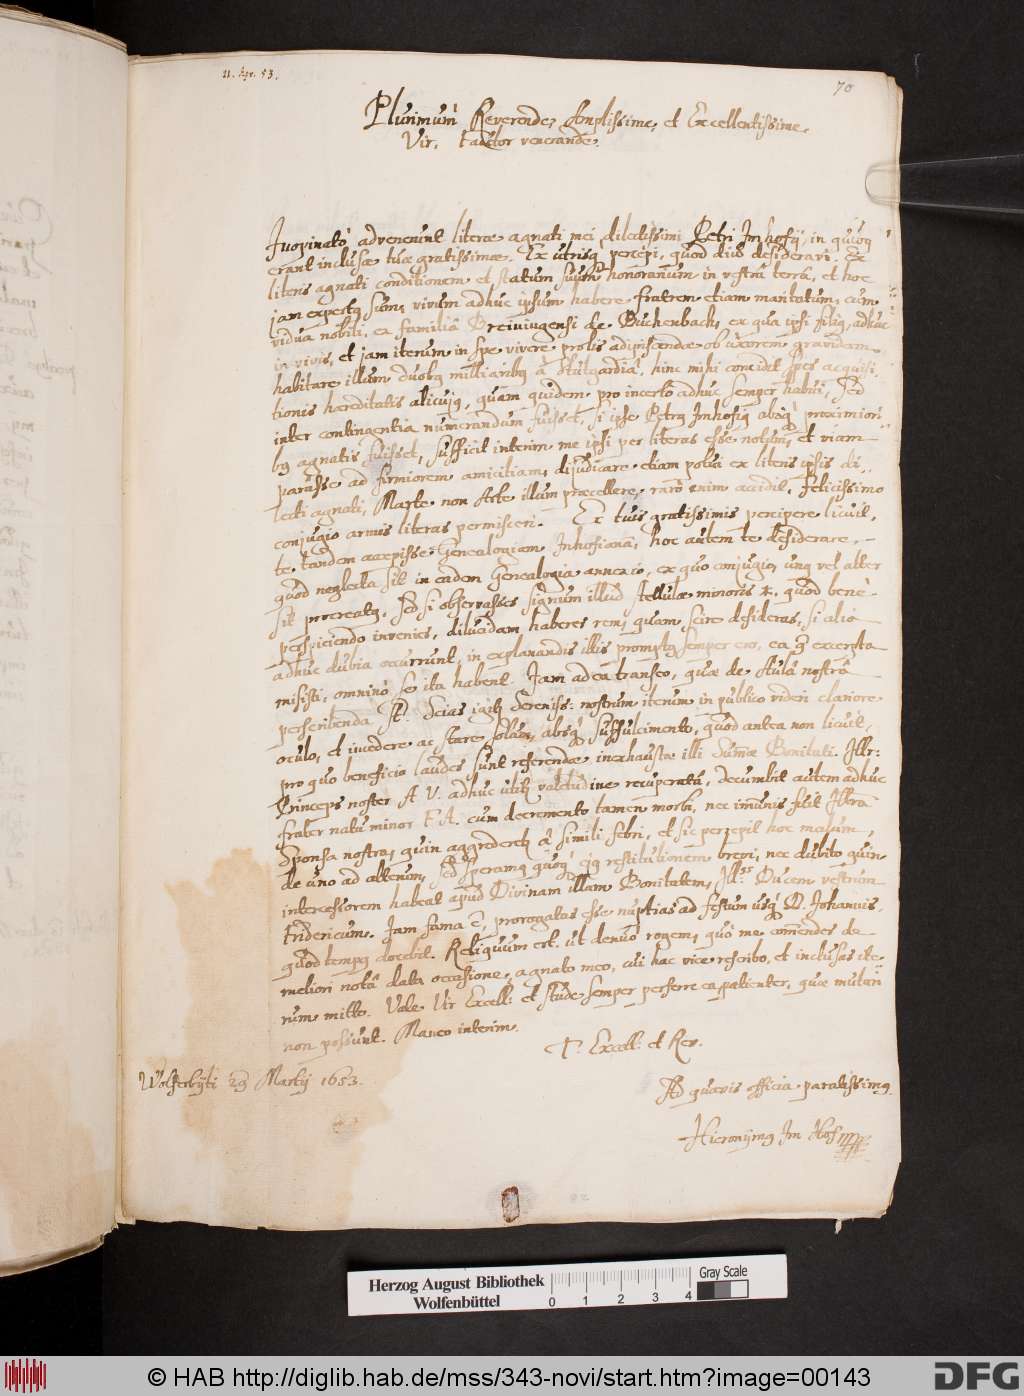 11. Apr. 53.
70
Plurimum Reverende, Amplissime, et Excellentissime
Vir, Fautor venerande.
Inopinato advenerunt literæ agnati mei dilectissimi Petri Im hofij, in quibq
erant inclusæ tuæ gratissimæ. Ex utrisq percepi, quod diu desideravi. Ex
literis agnati conditionem et statum suum honoratum in vestra terra, et hoc
jam expertq sum, vivum adhuc ipsum habere fratrem etiam maritatum, cum
vidua nobili, ex familia de Buchenbach, ex qua ipsi filiq, adhuc
in vivis, et jam iterum in spe vivere prolis adipiscendæ ob uxorem gravidam,
habitare illum duobq milliaribq à Stutgardia, hinc mihi concidit spes acquisi
tionis hæreditatis alicujq, quam quidem pro incerto adhuc semper habui, sed
inter contingentia numerandum fuisset, si ipse Petrq Imhofiq absq proximiori
bq agnatis fuisset, sufficit interim me ipsi per literas esse notum, et viam
parasse ad firmiorem amicitiam, dijudicare etiam potui ex literis ipsis di
lecti agnati, Marte non Arte illum præcellere, raro enim accidit, felicissimo
conjugio armis literas permisceri. Ex tuis gratissimis percipere licuit,
te tandem accepisse Genealogiam Imhofianã, hoc autem te desiderare,
quod neglecta sit in eadem Genealogia annexio, ex quo conjugio, unq vel alter
sit procreatq. Sed si observasses signum illud stellulæ minoris *. quod bene
perspiciendo invenies, dilucidam haberes rem, quam scire desideras, si alia
adhuc dubia occurrunt, in explanandis illis promptq semper ero, ea q excerpta
misisti, omnino se ita habent. Jam ad ea transeo, quæ de Aula nostra
perscribenda st. Scias igitr Sereniss: nostrum iterum in publico videri clariore
oculo, et incedere ac stare solum, absq suffulcimento, quod antea non licuit,
pro quo beneficio laudes sunt referendæ inexhaustæ illi Sumæ Bonitati. Illr:
Princeps noster A. V. adhuc utitr valetudine recuperata, decumbit autem adhuc
frater natu minor F. A. cum decremento tamen morbi, nec imunis fuit Illrã
Sponsa nostra, quin aggrederetr à simili febri, et sic perrepit hoc malum,
de uno ad alterum, sed speramq quoq ejq restitutionem brevi, nec dubito quin
intercessorem habeat apud Divinam illam Bonitatem, Ill:m Ducem vestrum
Fridericum. Jam fama ẽ, prorogatas esse nuptias ad festum usq D. Johannis,
quod tempq docebit. Reliquum ert. ut denuo rogem, quo me comẽndes de
meliori nota data occasione, agnato meo, cui hac vice rescribo, et inclusas ite
rum mitto. Vale Vir Excell: et stude semper perferre ea patienter, quæ mutari
non possunt. Maneo interim
T. Excell: et Rev.
Wolferbyti 29 Martij 1653.
Ad quævis officia paratissimq
Hieronijmq Im Hof
Herzog August Bibliothek
Wolfenbüttel
0 1 2 3 4
Gray Scale
© HAB http://diglib.hab.de/mss/343-novi/start.htm?image=00143
DFG